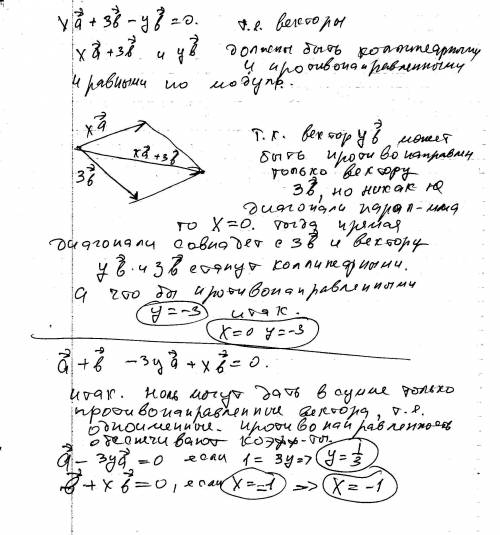 xa⃗ + 3b⃗ - yb⃗ = 0. т.е. векторы
xa⃗ + 3b⃗ и yb⃗ должны быть коллинеарными
и противонаправленными
и равными по модулю.
xa⃗
xa⃗ + 3b⃗
3b⃗
т.к. вектор yb⃗ может
быть противонаправлен
только вектору
3b⃗, но никак не
диагонали парал-мма
то x=0. тогда прямая
диагонали совпадет с 3b⃗ и векторы
yb⃗ и 3b⃗ станут коллинеарными.
а что бы противонаправленными
y=-3 итак.
x=0 y=-3
a⃗ + b⃗ - 3ya⃗ + xb⃗ = 0.
итак. ноль могут дать в сумме только
противонаправленные вектора, т.е.
одноименные. противонаправленность
обеспечивают коэ-ты
a⃗ - 3ya⃗ = 0 если 1 = 3y => y = 1/3
b⃗ + xb⃗ = 0, если x = -1 => x = -1